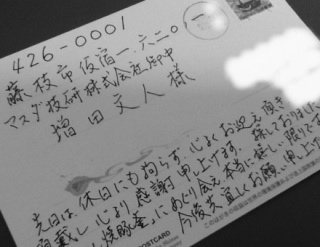 426-0001
藤枝市仮宿一、六二〇
マスダ技研株式会社御中
増田文人様
先日は、休日にも拘らず、心よくお迎え頂き
頂戴し心より感謝申し上げます。探しておりました
焼酎釜にめぐり会え本当に嬉しい限りです
今後共宜しくお願い申し上げ
POSTCARD